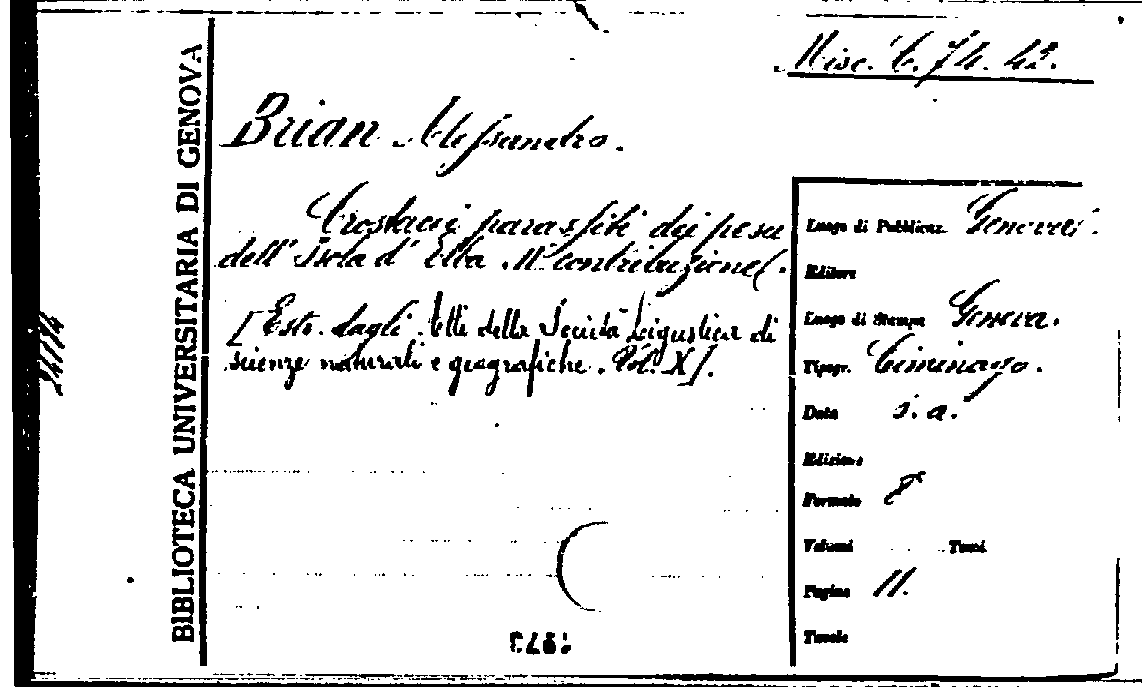 Misc. C. 74. 42.
BIBLIOTECA UNIVERSITARIA DI GENOVA
Brian Alessandro.
Crostacei parassiti dei pesci
dell' Isola d' Elba. IIª contribuzione.
[Estr. dagli Atti della Società Ligustica di
scienze naturali e geografiche. Vol. X].
Luogo di Pubblicaz. Genova.
Editore
Luogo di Stampa Genova.
Tipogr. Ciminago.
Data s. a.
Edizione
Formato 8°
Volumi Tomi
Pagine 11.
Tavole